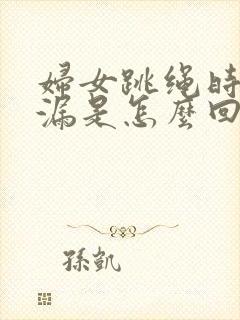 婦女跳绳時
漏是怎麼回
孫凱